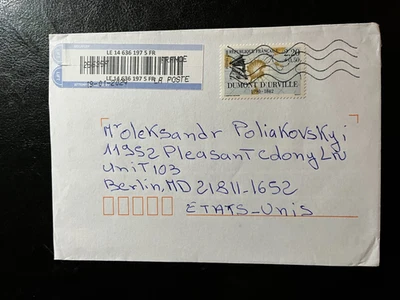 LE 14 636 197 5 FR
FRANCE
LE 14 636 197 5 FR
LA POSTE
RÉPUBLIQUE FRANÇAISE
DUMONT D'URVILLE
1790-1842
Mr Oleksandr Poliakovskyi
11952 Pleasant Colony LN
UNIT 103
Berlin, MD 21811-1652
ETATS-UNIS